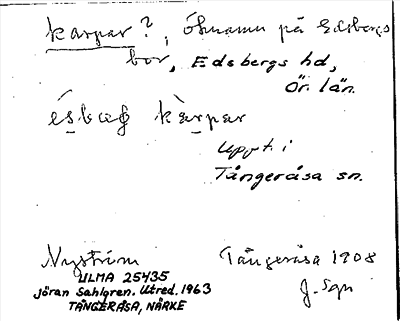 karpar?, Öknamn på Edsbergs
bor, Edsbergs hd,
Ör. län.
kàrpar
Uppt. i
Tångeråsa sn.
Nyström Tångeråsa 1908
ULMA 25435 J. Sgn
Jöran Sahlgren. Utred. 1963
TÅNGERÅSA, NÄRKE